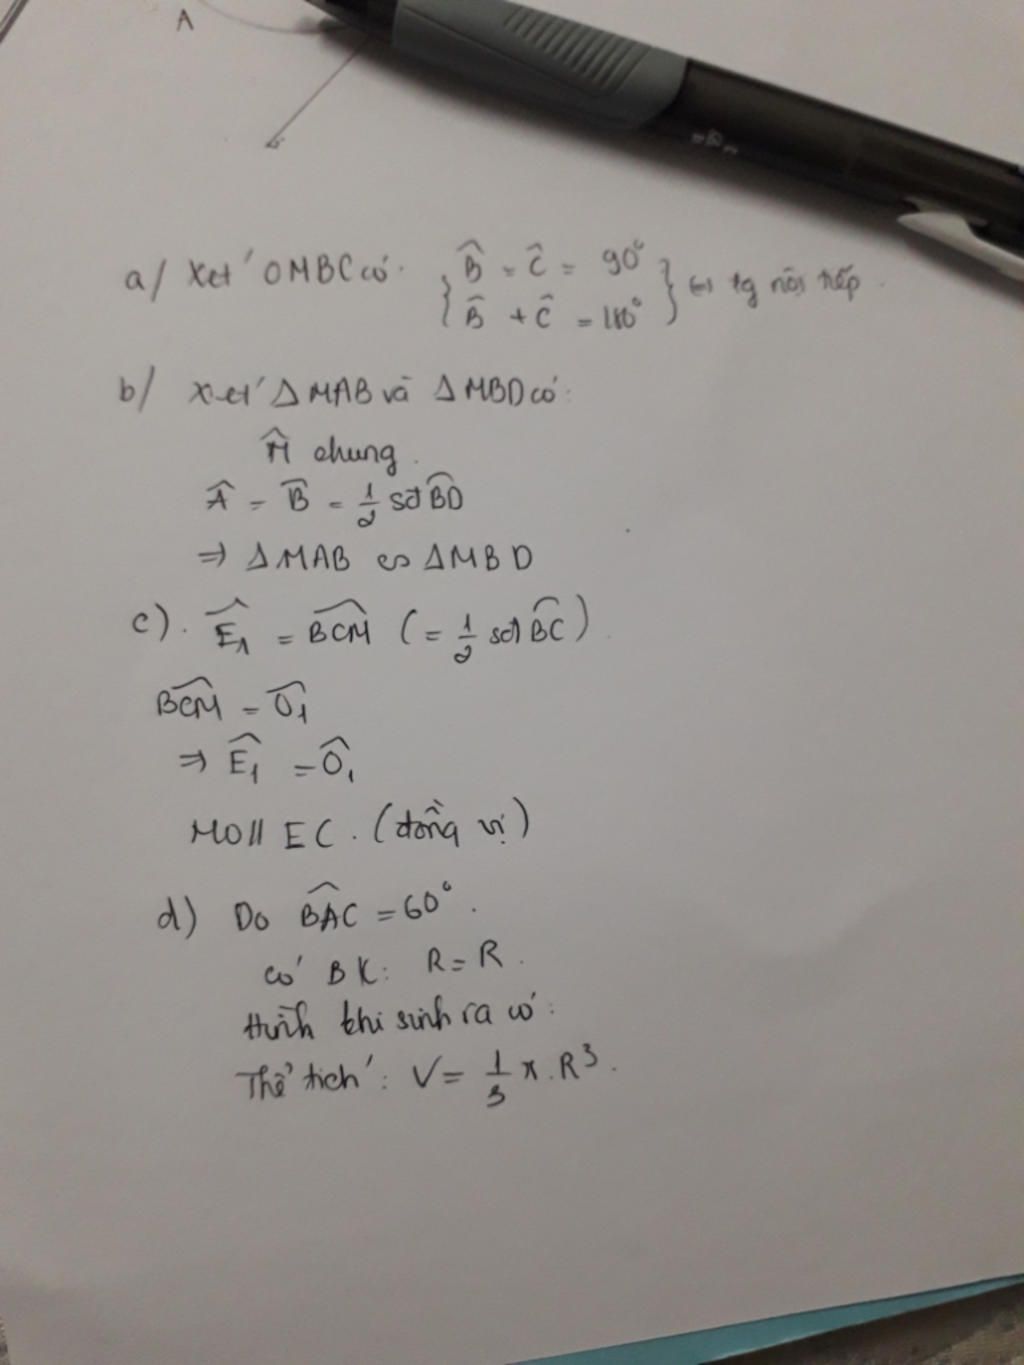 A
a/ Xét OMBC có: { B̂ = Ĉ = 90°
B̂ + Ĉ = 180° } tg nội tiếp.
b/ Xét ΔMAB và ΔMBD có:
M̂ chung.
Â = B̂ = 1/2 sđ BD
⇒ ΔMAB ∽ ΔMBD
c). Ê₁ = BCM (= 1/2 sđ BC).
BCM = Ô₁
⇒ Ê₁ = Ô₁
MO // EC. (đồng vị)
d) Do BAC = 60°.
có BK: R = R.
Hình khi sinh ra có:
Thể tích: V = 1/3 π.R³.